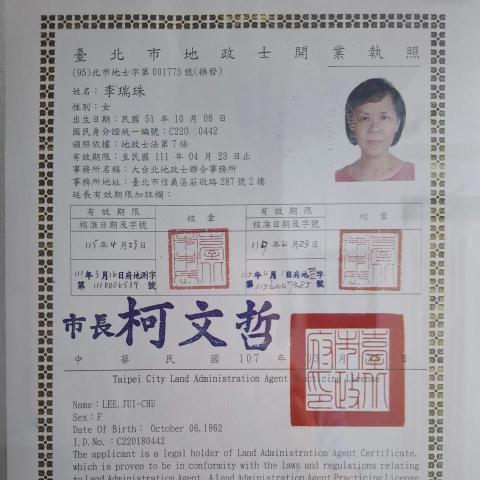 臺北市地政士開業執照
(95)北市地士字第001773號(換發)
姓名:李瑞珠
性別:女
出生日期:民國 51 年 10 月 06 日
國民身分證統一編號:C220 0442
頒照依據:地政士法第 7 條
有效期限:至民國 111 年 04 月 23 日止
事務所名稱:大台北地政士聯合事務所
事務所地址:臺北市信義區莊敬路287號2樓
延長有效期限加註欄:
有效期限 核章 有效期限 核章
核准日期及字號 核准日期及字號
115年4月23日 119年4月23日
111年3月16日府地測字 115年4月1日府地 字
第1110006539號 第1156007385號
市長 柯文哲
中華民國 107 年 03 月
Taipei City Land Administration Agent Practicing License
Name:LEE, JUI-CHU
Sex:F
Date Of Birth: October 06,1962
I.D.No.:C220180442
The applicant is a legal holder of Land Administration Agent Certificate,
which is proven to be in conformity with the laws and regulations relating
to Land Administration Agent. A Land Administration Agent Practicing License